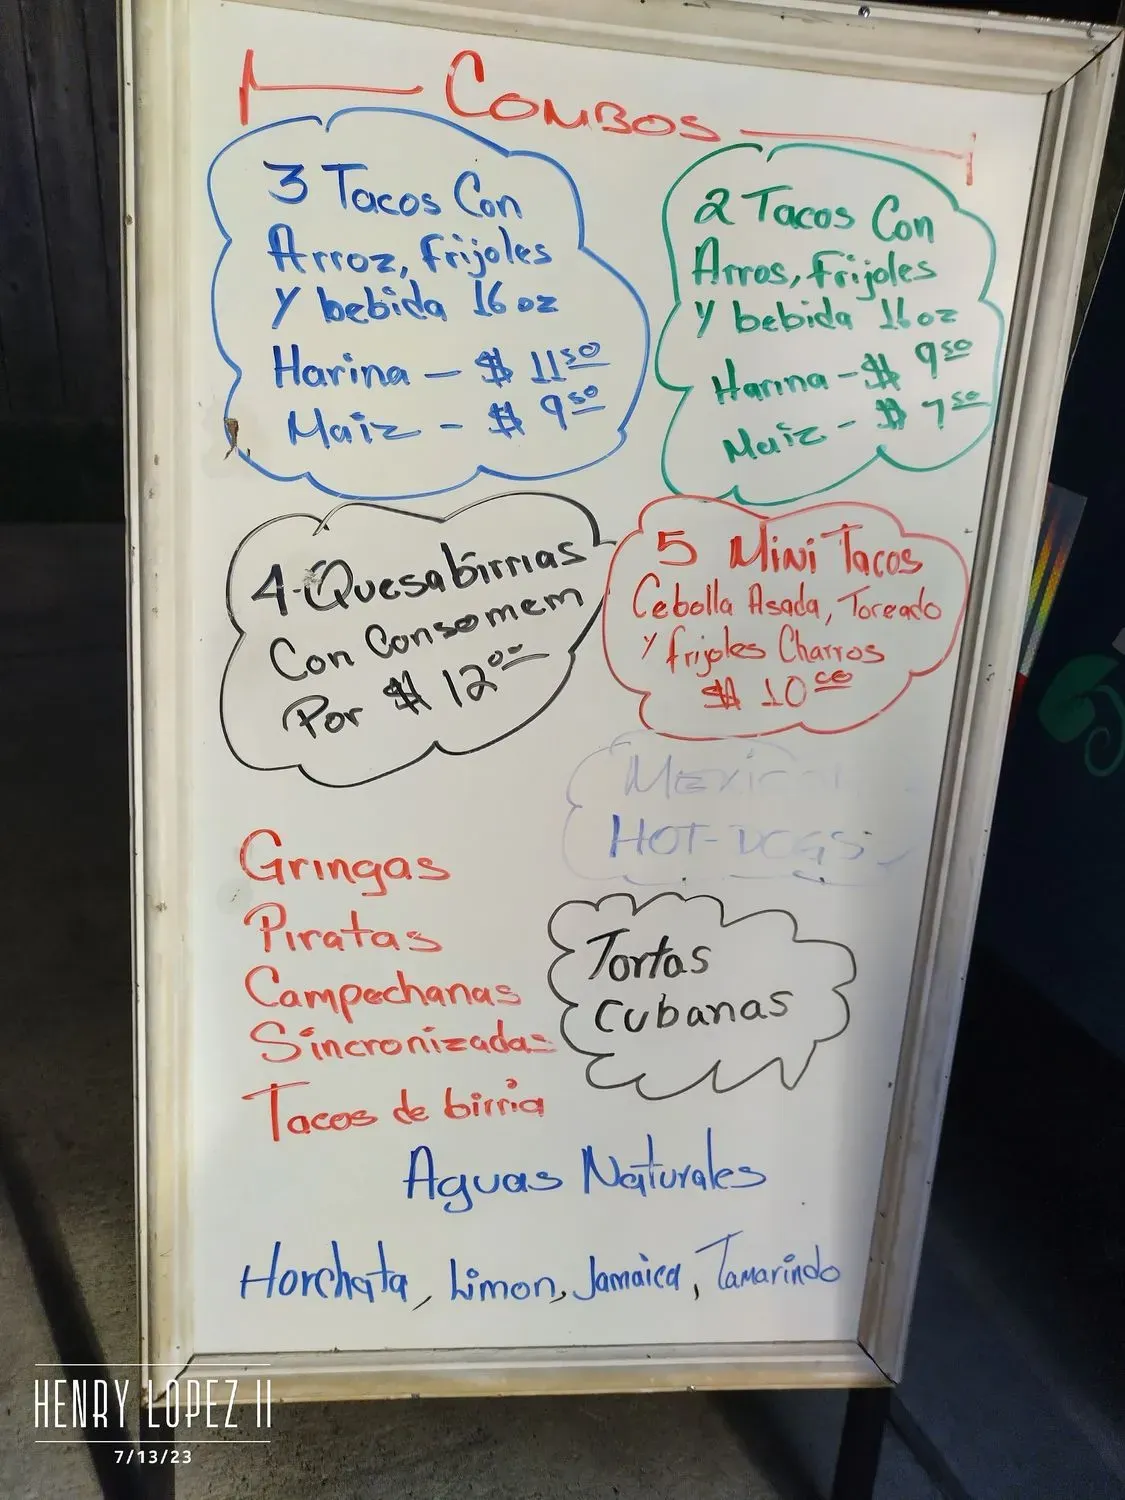 Combos
3 Tacos Con
Arroz, frijoles
y bebida 16 oz
Harina - $ 11 50
Maiz - $ 9 50
2 Tacos Con
Arros, frijoles
y bebida 16 oz
Harina - $ 9 50
Maiz - $ 7 50
4-Quesabirrias
Con Consomem
Por $ 12 00
5 Mini Tacos
Cebolla Asada, Toreado
y frijoles Charros
$ 10 00
HOT-DOGS
Gringas
Piratas
Campechanas
Sincronizadas
Tacos de birria
Tortas
Cubanas
Aguas Naturales
Horchata, Limon, Jamaica, Tamarindo
HENRY LOPEZ II
7/13/23